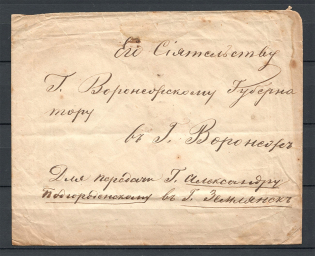 Его Сіятельству
Г. Воронежскому Губерна
тору
въ Г. Воронежъ
Для передачи Г. Александру
въ Г. Землянскъ